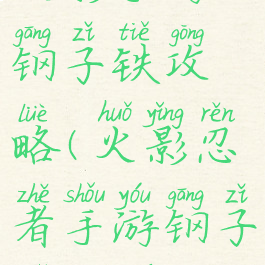 gāng zǐ tiě gōng
钢子铁攻
lüè huǒ yǐng rěn
略(火影忍
zhě shǒu yóu gāng zǐ
者手游钢子